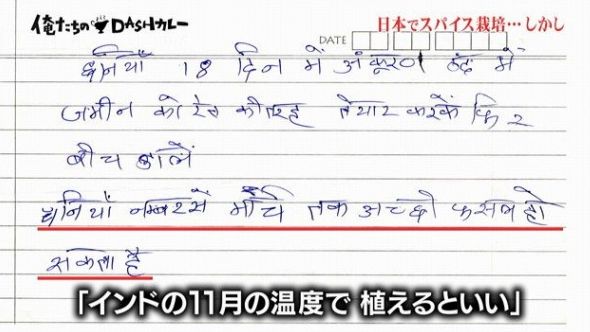 俺たちのDASHカレー
日本でスパイス栽培…しかし
DATE
धनियाँ 18 दिन में अंकूरण ठंढ में
जमीन को रेत की तरह तैयार करकें फिर
बीच डालें
धनियाँ नम्बरसें मार्च तक अच्छी फसल हो
सकता है
「インドの11月の温度で 植えるといい」